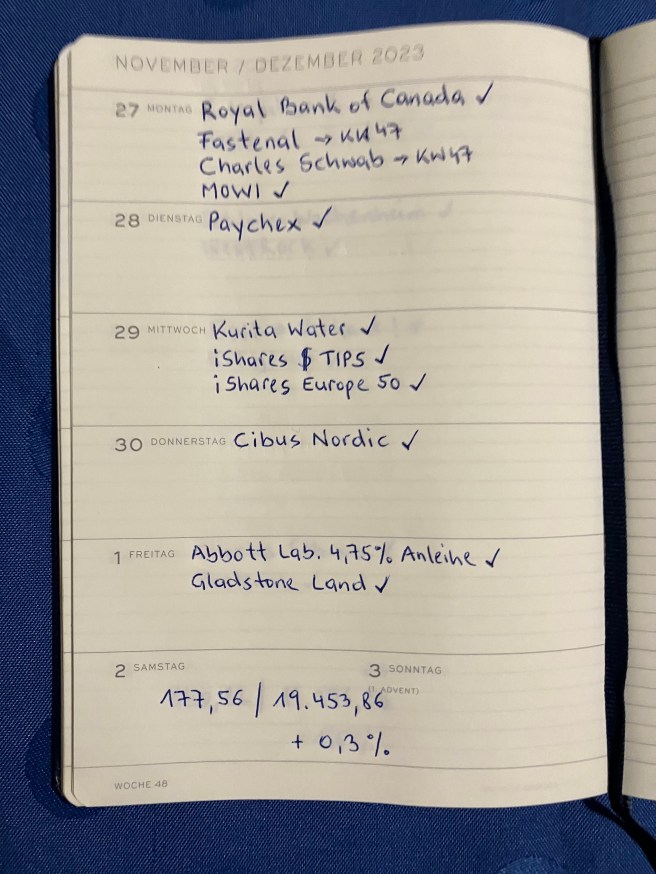 NOVEMBER / DEZEMBER 2023
27 MONTAG Royal Bank of Canada ✓
Fastenal → KW47
Charles Schwab → KW47
MOWI ✓
28 DIENSTAG Paychex ✓
29 MITTWOCH Kurita Water ✓
iShares $ TIPS ✓
iShares Europe 50 ✓
30 DONNERSTAG Cibus Nordic ✓
1 FREITAG Abbott Lab. 4,75% Anleihe ✓
Gladstone Land ✓
2 SAMSTAG 3 SONNTAG
(1. ADVENT)
177,56 / 19.453,86
+ 0,3%
WOCHE 48